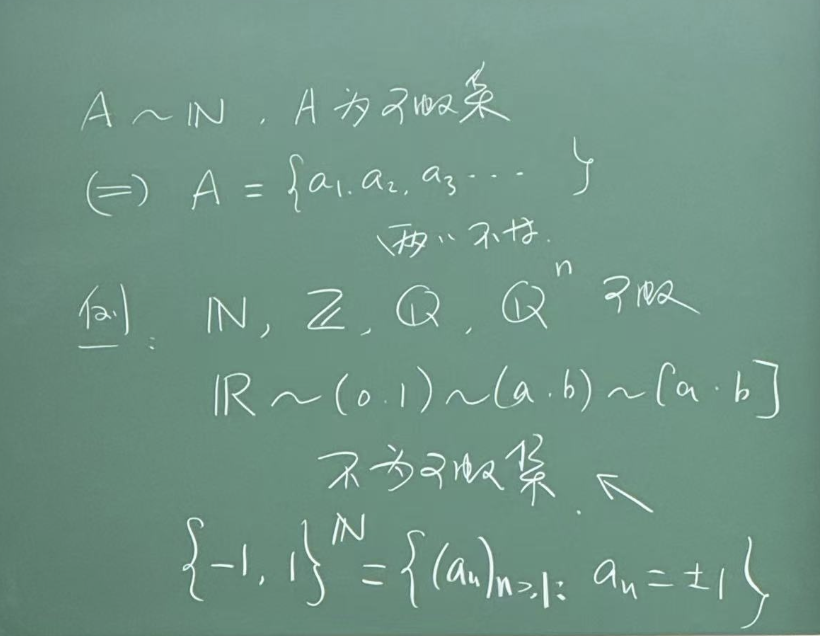 A ~ ℕ , A 为可数集
(=) A = {a₁, a₂, a₃ ... }
两两不等.
例: ℕ, ℤ, ℚ, ℚⁿ 可数
ℝ ~ (0.1) ~ (a.b) ~ [a.b]
不为可数集. ↖
{-1, 1}^ℕ = {(aₙ)ₙ≥₁: aₙ = ±1}